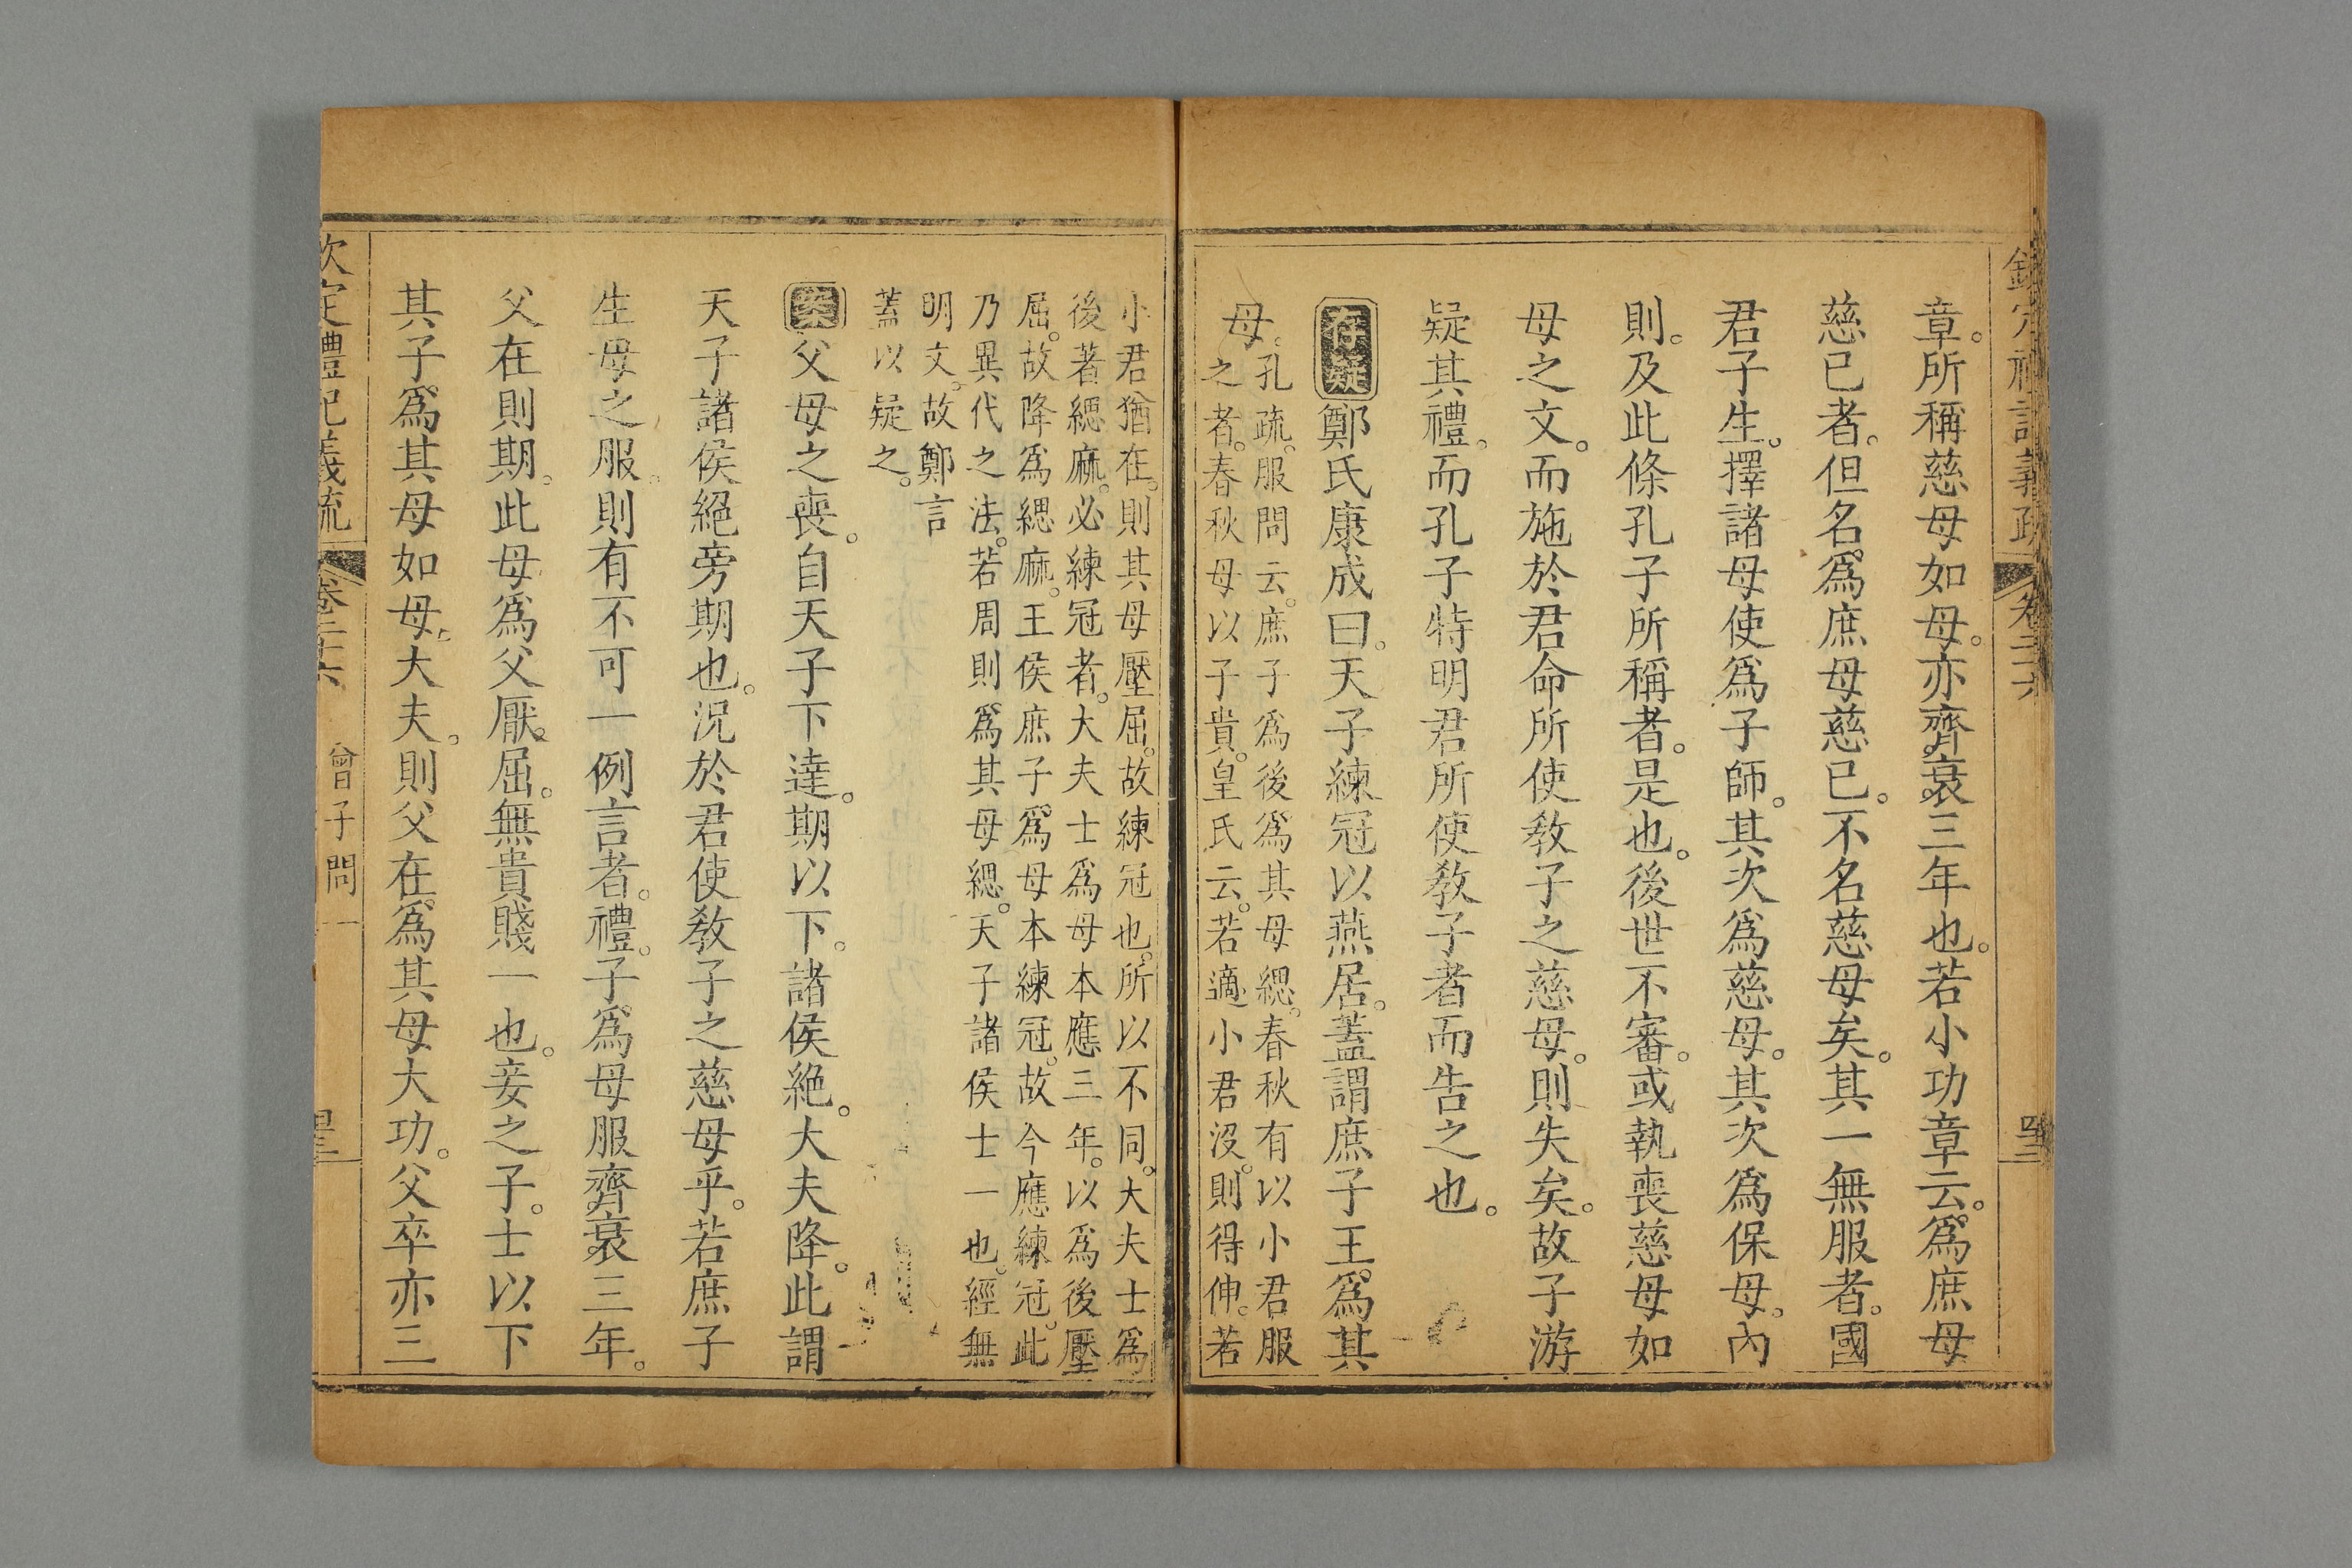 章。所稱慈母如母。亦齊衰三年也。若小功章云。爲庶母
慈已者。但名爲庶母慈已。不名慈母矣。其一無服者。國
君子生。擇諸母使爲子師。其次爲慈母。其次爲保母。內
則。及此條孔子所稱者。是也。後世不審。或執喪慈母如
母之文。而施於君命所使敎子之慈母。則失矣。故子游
疑其禮。而孔子特明君所使敎子者而告之也。
存疑鄭氏康成曰。天子練冠以燕居。蓋謂庶子王爲其
母。
孔疏。服問云。庶子爲後爲其母緦。春秋有以小君服
之者。春秋母以子貴。皇氏云。若適小君沒。則得伸。若
小君猶在。則其母壓屈。故練冠也。所以不同。大夫士爲
後著緦麻。必練冠者。大夫士爲母本應三年。以爲後壓
屈。故降爲緦麻。王侯庶子爲母本練冠。故今應練冠。此
乃異代之法。若周則爲其母緦。天子諸侯士一也。經無
明文。故鄭言
蓋以疑之。
案父母之喪。自天子下達。期以下。諸侯絶。大夫降。此謂
天子諸侯絕旁期也。況於君使敎子之慈母乎。若庶子
生母之服。則有不可一例言者。禮。子爲母服齊衰三年。
父在則期。此母爲父厭屈。無貴賤一也。妾之子。士以下
其子爲其母如母。大夫。則父在。爲其母大功。父卒亦三
欽定禮記義疏
卷二十六
曾子問